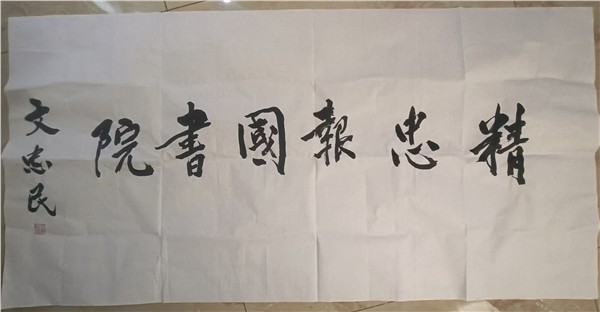 精忠報國書院
文志民